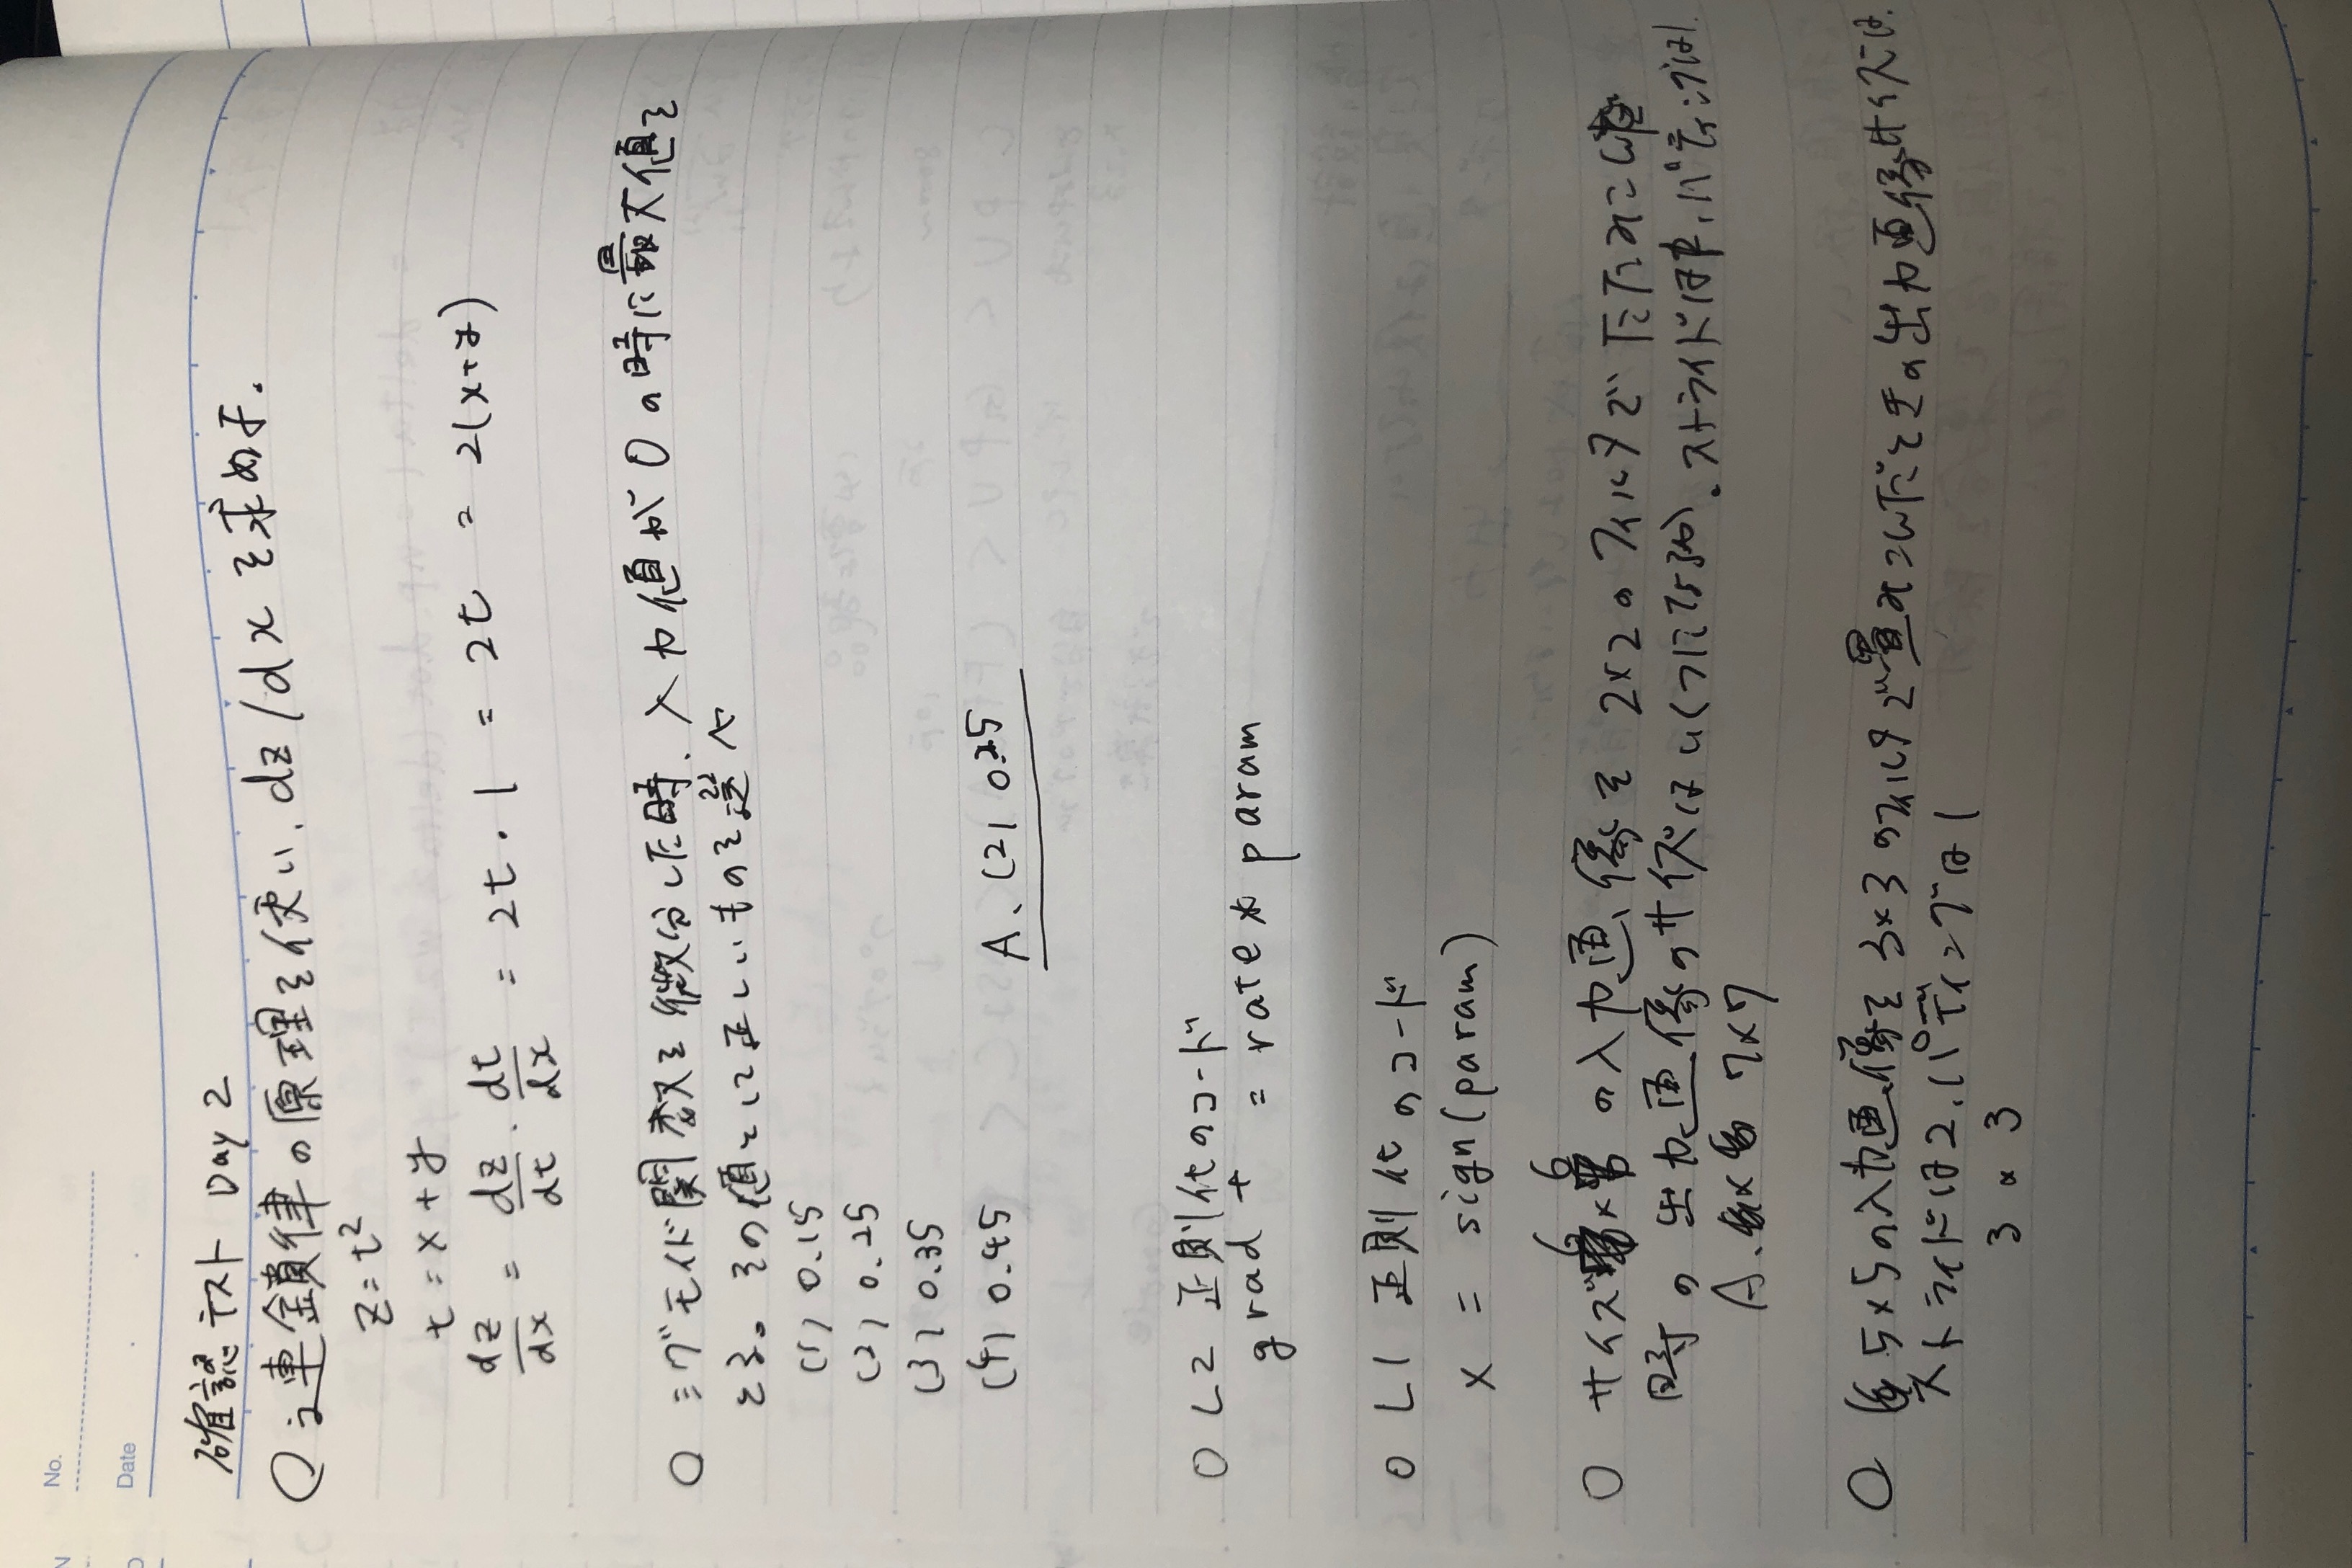 No.
Date
確認テスト Day 2
○ 連鎖律の原理を使い、dz/dxを求めよ.
z = t²
t = x + y
dz/dx = dz/dt · dt/dx = 2t · 1 = 2t = 2(x+y)
○ シグモイド関数を微分した時、入力値が0の時に最大値を
とる。その値として正しいものを選べ
(1) 0.15
(2) 0.25
(3) 0.35
(4) 0.45
A、(2) 0.25
○ L2 正則化のコード
grad += rate * param
○ L1 正則化のコード
x = sign(param)
○ サイズ6×6の入力画像を2×2のフィルタでたたみこんだ
時の出力画像のサイズはいくつになるか. ストライドは1、パディングは1
A. 7×7
○ 5×5の入力画像を3×3のフィルタで畳みこんだときの出力画像サイズは.
ストライドは2、パディングは1
3 × 3